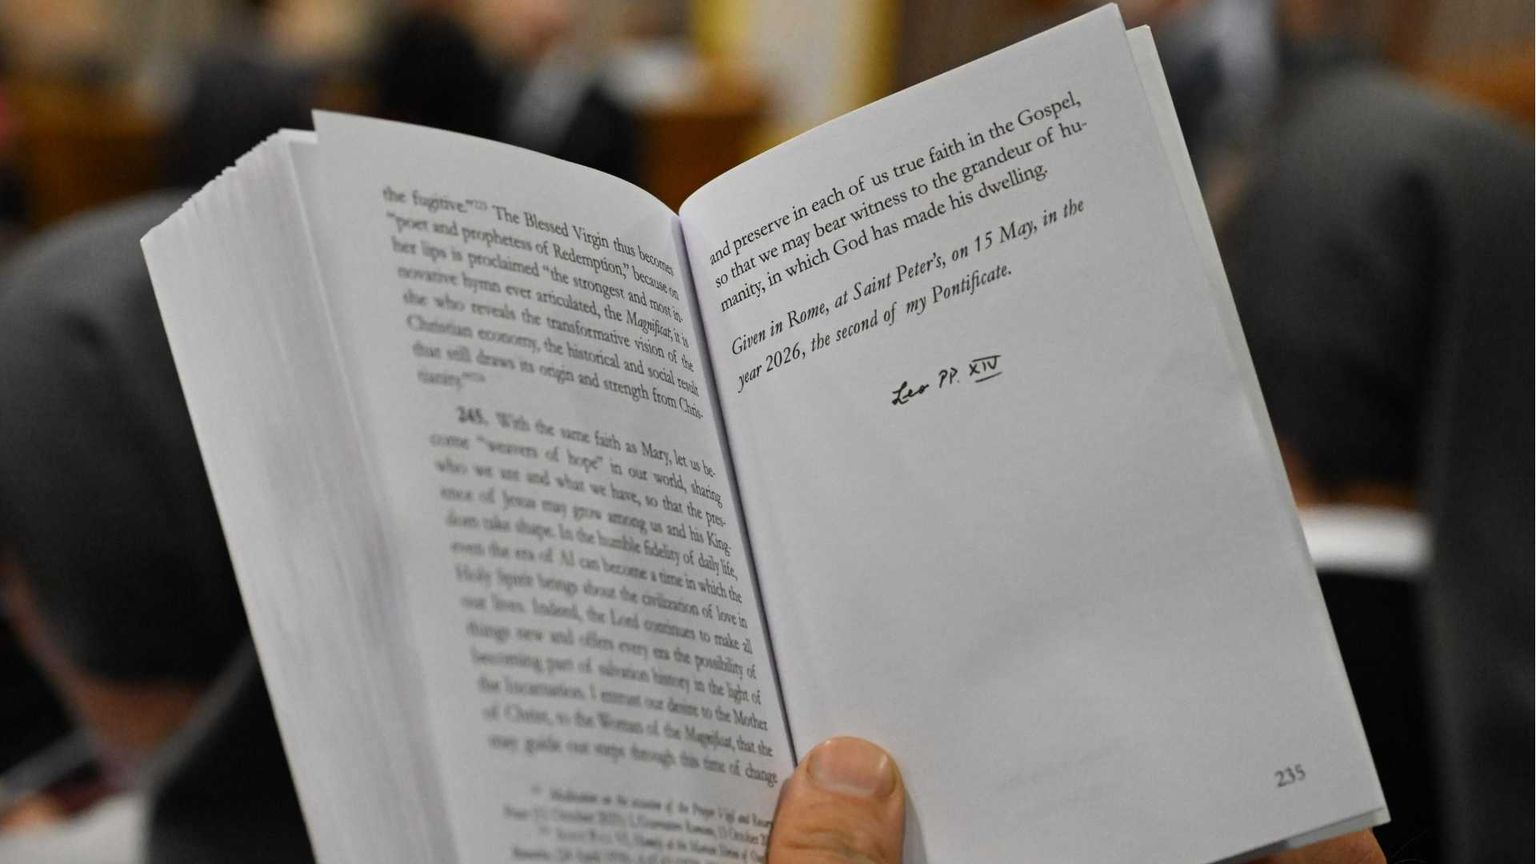 the fugitive."²²³ The Blessed Virgin thus becomes
"poet and prophetess of Redemption," because on
her lips is proclaimed "the strongest and most in-
novative hymn ever articulated, the Magnificat; it is
she who reveals the transformative vision of the
Christian economy, the historical and social result
that still draws its origin and strength from Chris-
tianity."
245. With the same faith as Mary, let us be-
come "weavers of hope" in our world, sharing
who we are and what we have, so that the pres-
ence of Jesus may grow among us and his King-
dom take shape. In the humble fidelity of daily life,
even the era of AI can become a time in which the
Holy Spirit brings about the civilization of love in
our lives. Indeed, the Lord continues to make all
things new and offers every era the possibility of
becoming part of salvation history in the light of
the Incarnation. I entrust our desire to the Mother
of Christ, to the Woman of the Magnificat, that she
may guide our steps through this time of change
and preserve in each of us true faith in the Gospel,
so that we may bear witness to the grandeur of hu-
manity, in which God has made his dwelling.
Given in Rome, at Saint Peter's, on 15 May, in the
year 2026, the second of my Pontificate.
Leo PP. XIV
235